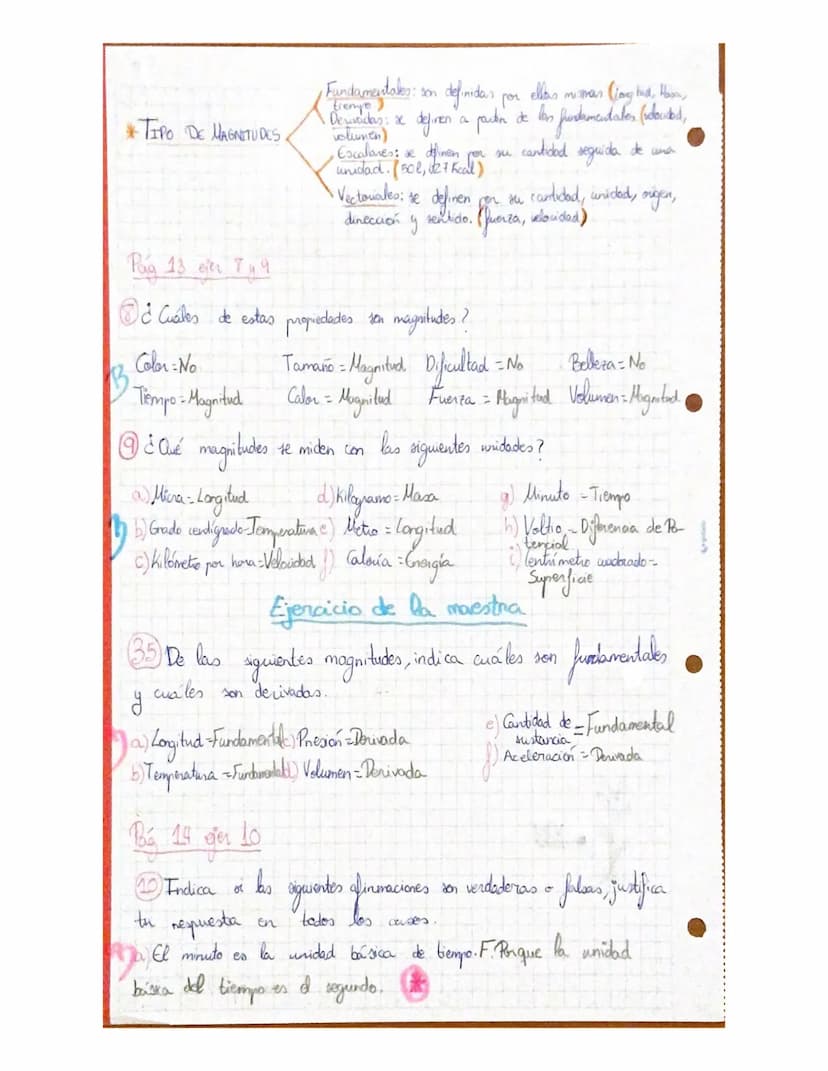 Fundamentales: son definidas por ellas mismas (longitud, Masa,
tiempo)
Derivadas: se definen a partir de las fundamentales (velocidad,
volumen)
* TIPO DE MAGNITUDES
Escalares: se definen por su cantidad seguida de una
unidad. (50l, 127 Kcal)
Vectoriales: se definen por su cantidad, unidad, origen,
dirección y sentido. (fuerza, velocidad)
Pág 13 ejer 7 y 9
8 ¿Cuáles de estas propiedades son magnitudes?
Color = No Tamaño = Magnitud Dificultad = No Belleza = No
B
Tiempo = Magnitud Calor = Magnitud Fuerza = Magnitud Volumen = Magnitud
9 ¿Qué magnitudes se miden con las siguientes unidades?
a) Micra = Longitud d) Kilogramo = Masa g) Minuto = Tiempo
b) Grado centígrado = Temperatura e) Metro = Longitud h) Voltio = Diferencia de Po-
tencial
c) Kilómetro por hora = Velocidad f) Caloría = Energía i) Centímetro cuadrado =
Superficie
Ejercicio de la maestra
35 De las siguientes magnitudes, indica cuáles son fundamentales
y cuáles son derivadas.
a) Longitud = Fundamental c) Presión = Derivada e) Cantidad de sustancia = Fundamental
b) Temperatura = Fundamental d) Volumen = Derivada f) Aceleración = Derivada
Pág 14 ejer 10
10 Indica si las siguientes afirmaciones son verdaderas o falsas, justifica
tu respuesta en todos los casos.
a) El minuto es la unidad básica de tiempo. F. Porque la unidad
básica del tiempo es el segundo. *